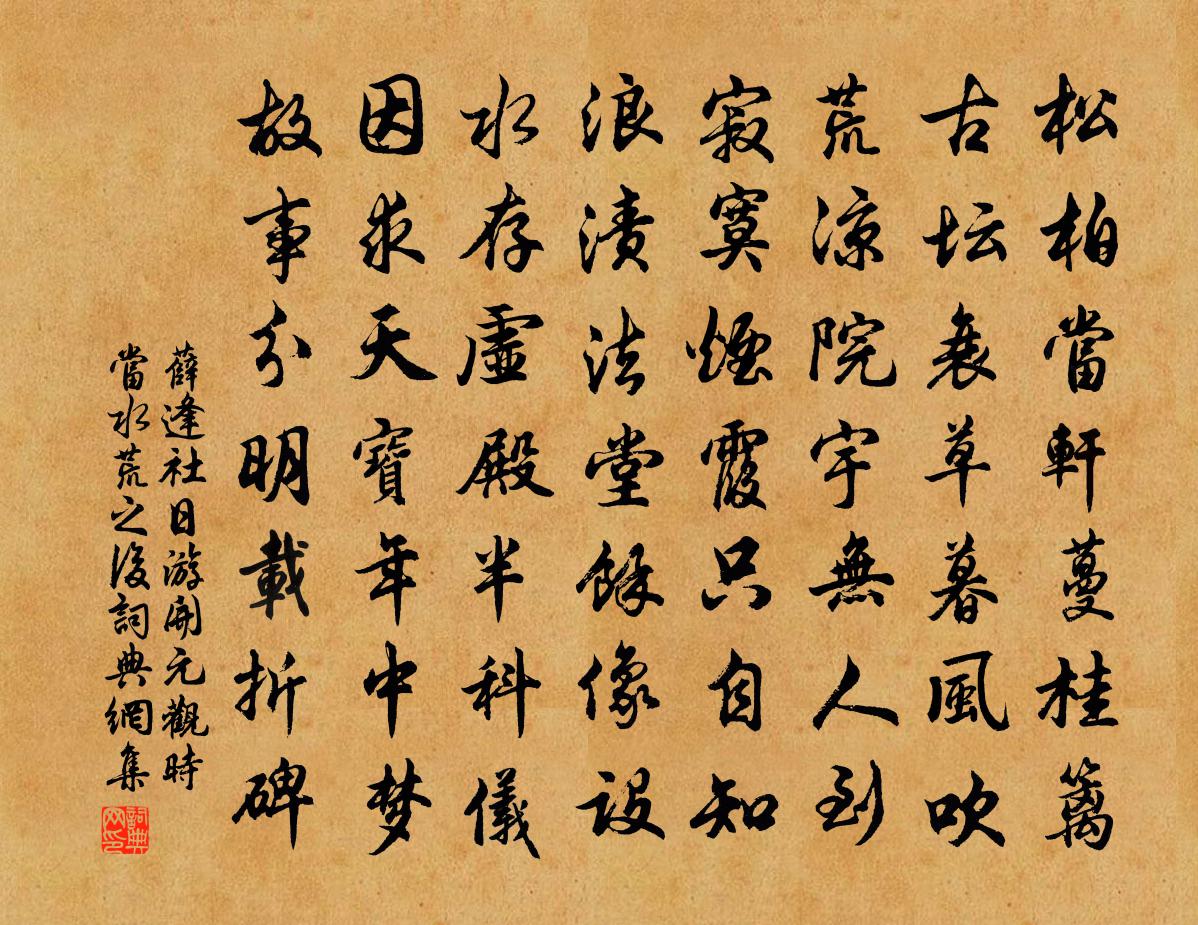 松柏當軒蔓桂籬
古坛衰草暮風吹
荒凉院宇無人到
寂寞煙霞只自知
浪漬法堂餘像設
水存虛殿半科儀
因求天寶年中梦
故事分明載折碑
薛逢社日游開元觀時
當水荒之後詞典網集
詞典网印